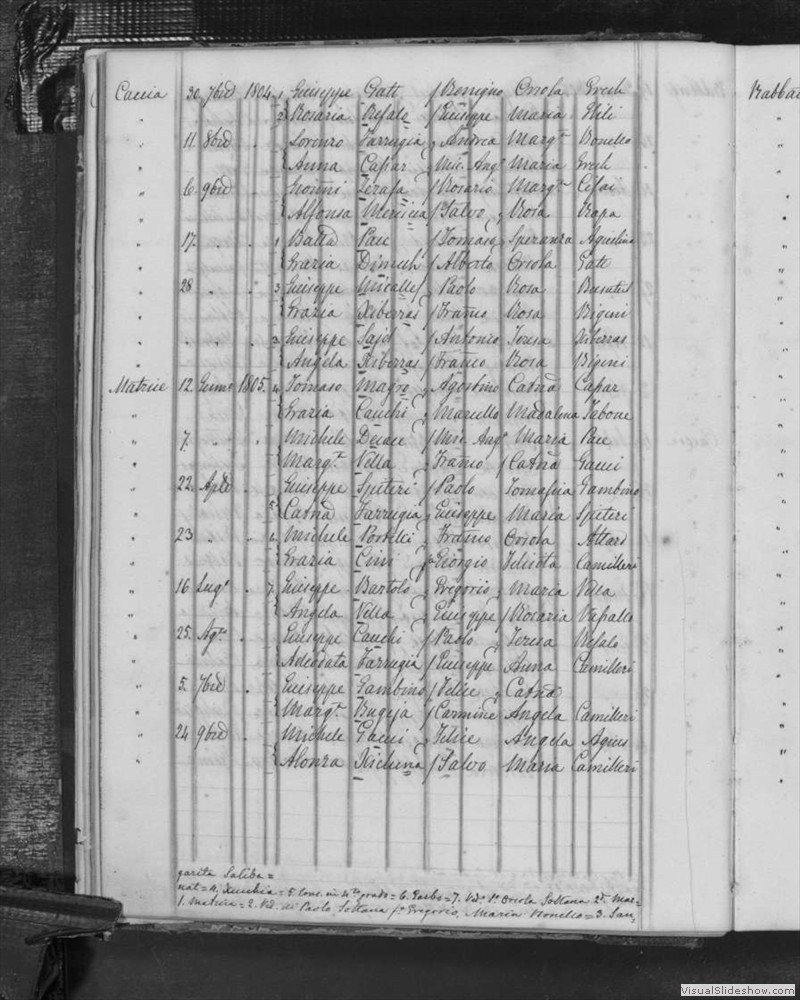 Caccia 30. 7bre 1804. 1 Giuseppe Gatt / Benigno Oriola Grech
" 2 Rosaria Refalo / Giuseppe Maria Stili
" 11. 8bre . Lorenzo Farrugia / Andrea Marg.ta Bonello
" Anna Caspar / Mic. Ang.o Maria Grech
" 6. 9bre . / Rosario Marg.ta Cefai
" Alfonsa / Salvo / Rosa Rapa
" 17. . . 1 Batta Pace / Tomaso / Speranza Agiuslina
" Grazia Dimech / Alberto Oriola Gatt
" 28 . . 3 Giuseppe Micallef / Paolo Rosa Busuttil
" Grazia Xiberras / Franco Rosa Bigini
" . . . 3 Giuseppe Said / Antonio Teresa Xiberras
" Angela Xiberras / Franco Rosa Bigini
Matrice 12. Genn.o 1805. 4 Tomaso Magro / Agostino Catna Caspar
" Grazia Cauchi / Marcello Madalena Tabone
" 7. . . Michele / Mic. Ang.o Maria Pace
" Marg.ta Vella / Franco / Catna Gauci
" 22. Aple . Giuseppe Spiteri / Paolo Gambino
" 5 Catna Farrugia / Giuseppe Maria Spiteri
" 23 . . 6 Michele Portelli / Franco Oriola Attard
" Grazia Cini / Giorgio Felicita Camilleri
" 16 Lug.o . 7 Giuseppe Bartolo / Gregorio / Maria Vella
" Angela Vella / Giuseppe / Rosaria
" 25. Ag.to . Giuseppe Cauchi / Paolo / Teresa Refalo
" Adeodata Farrugia / Giuseppe Anna Camilleri
" 5. 7bre . Giuseppe Gambino / Felice / Catna
" Marg.ta Bugeja / Carmine Angela Camilleri
" 24 9bre . Michele Gauci / Felice Angela Agius
" Alonza Xicluna / Salvo Maria Camilleri
garita Saliba =
nat = 4. Xeuchia = 5. Cons. in 4to grado = 6. Garbo = 7. Vid.o 1o Oriola Soltana 2o Mar=
1. Matrice = 2. Vid. di Paolo Soltana f.o Gregorio, Maria Bonello = 3. San=
Rabbat
VisualSlideshow.com